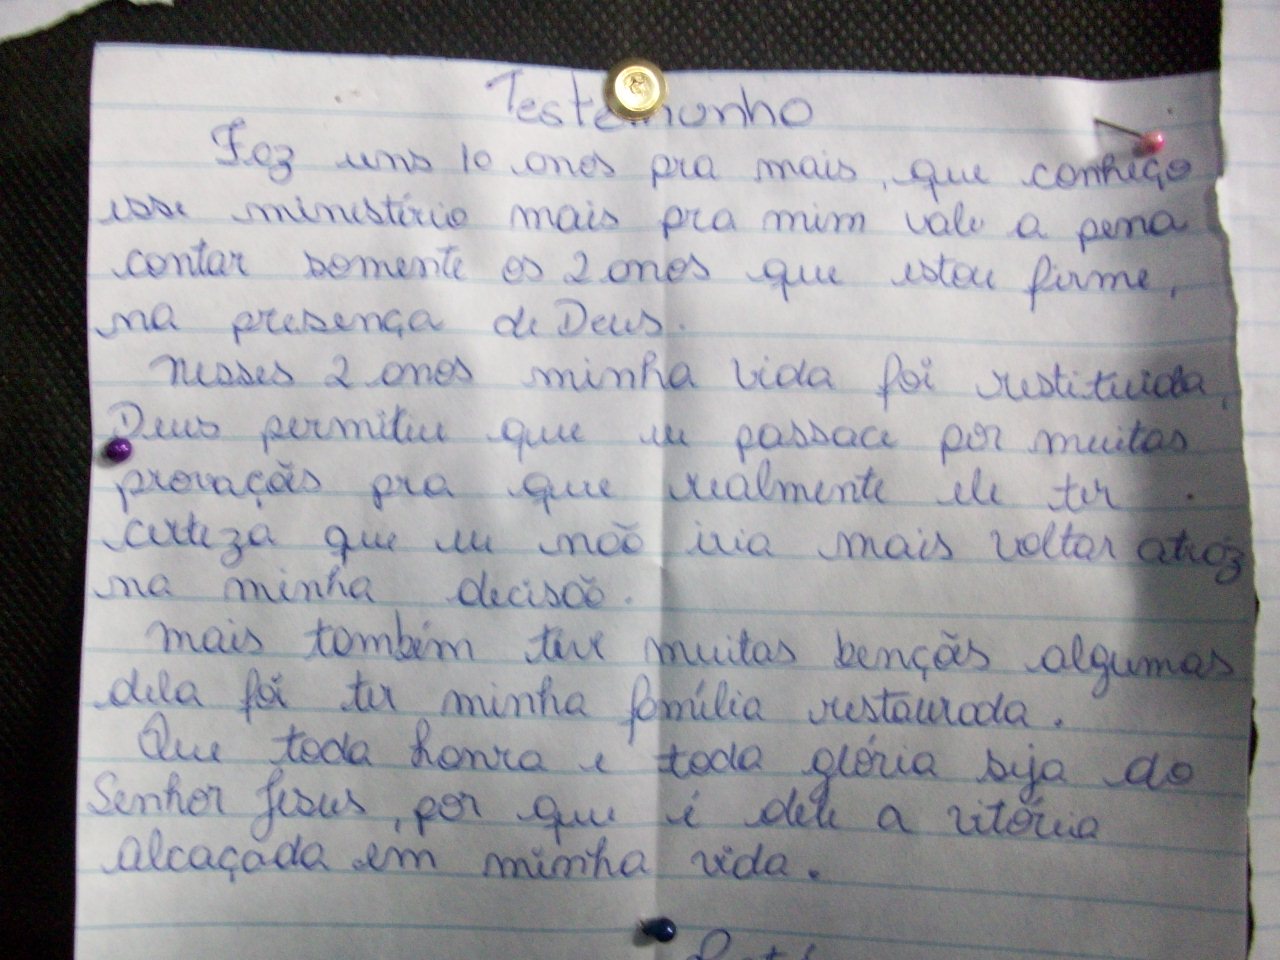 Testemunho
Faz uns 10 anos pra mais, que conheço
esse ministério mais pra mim vale a pena
contar somente os 2 anos que estou firme,
na presença de Deus.
Nesses 2 anos minha vida foi restituida,
Deus permitiu que eu passace por muitas
provações pra que realmente ele ter
certeza que eu não iria mais voltar atráz
na minha decisão.
Mais também tive muitas benções algumas
dela foi ter minha família restaurada.
Que toda honra e toda glória seja do
Senhor Jesus, por que é dele a vitória
alcaçada em minha vida.